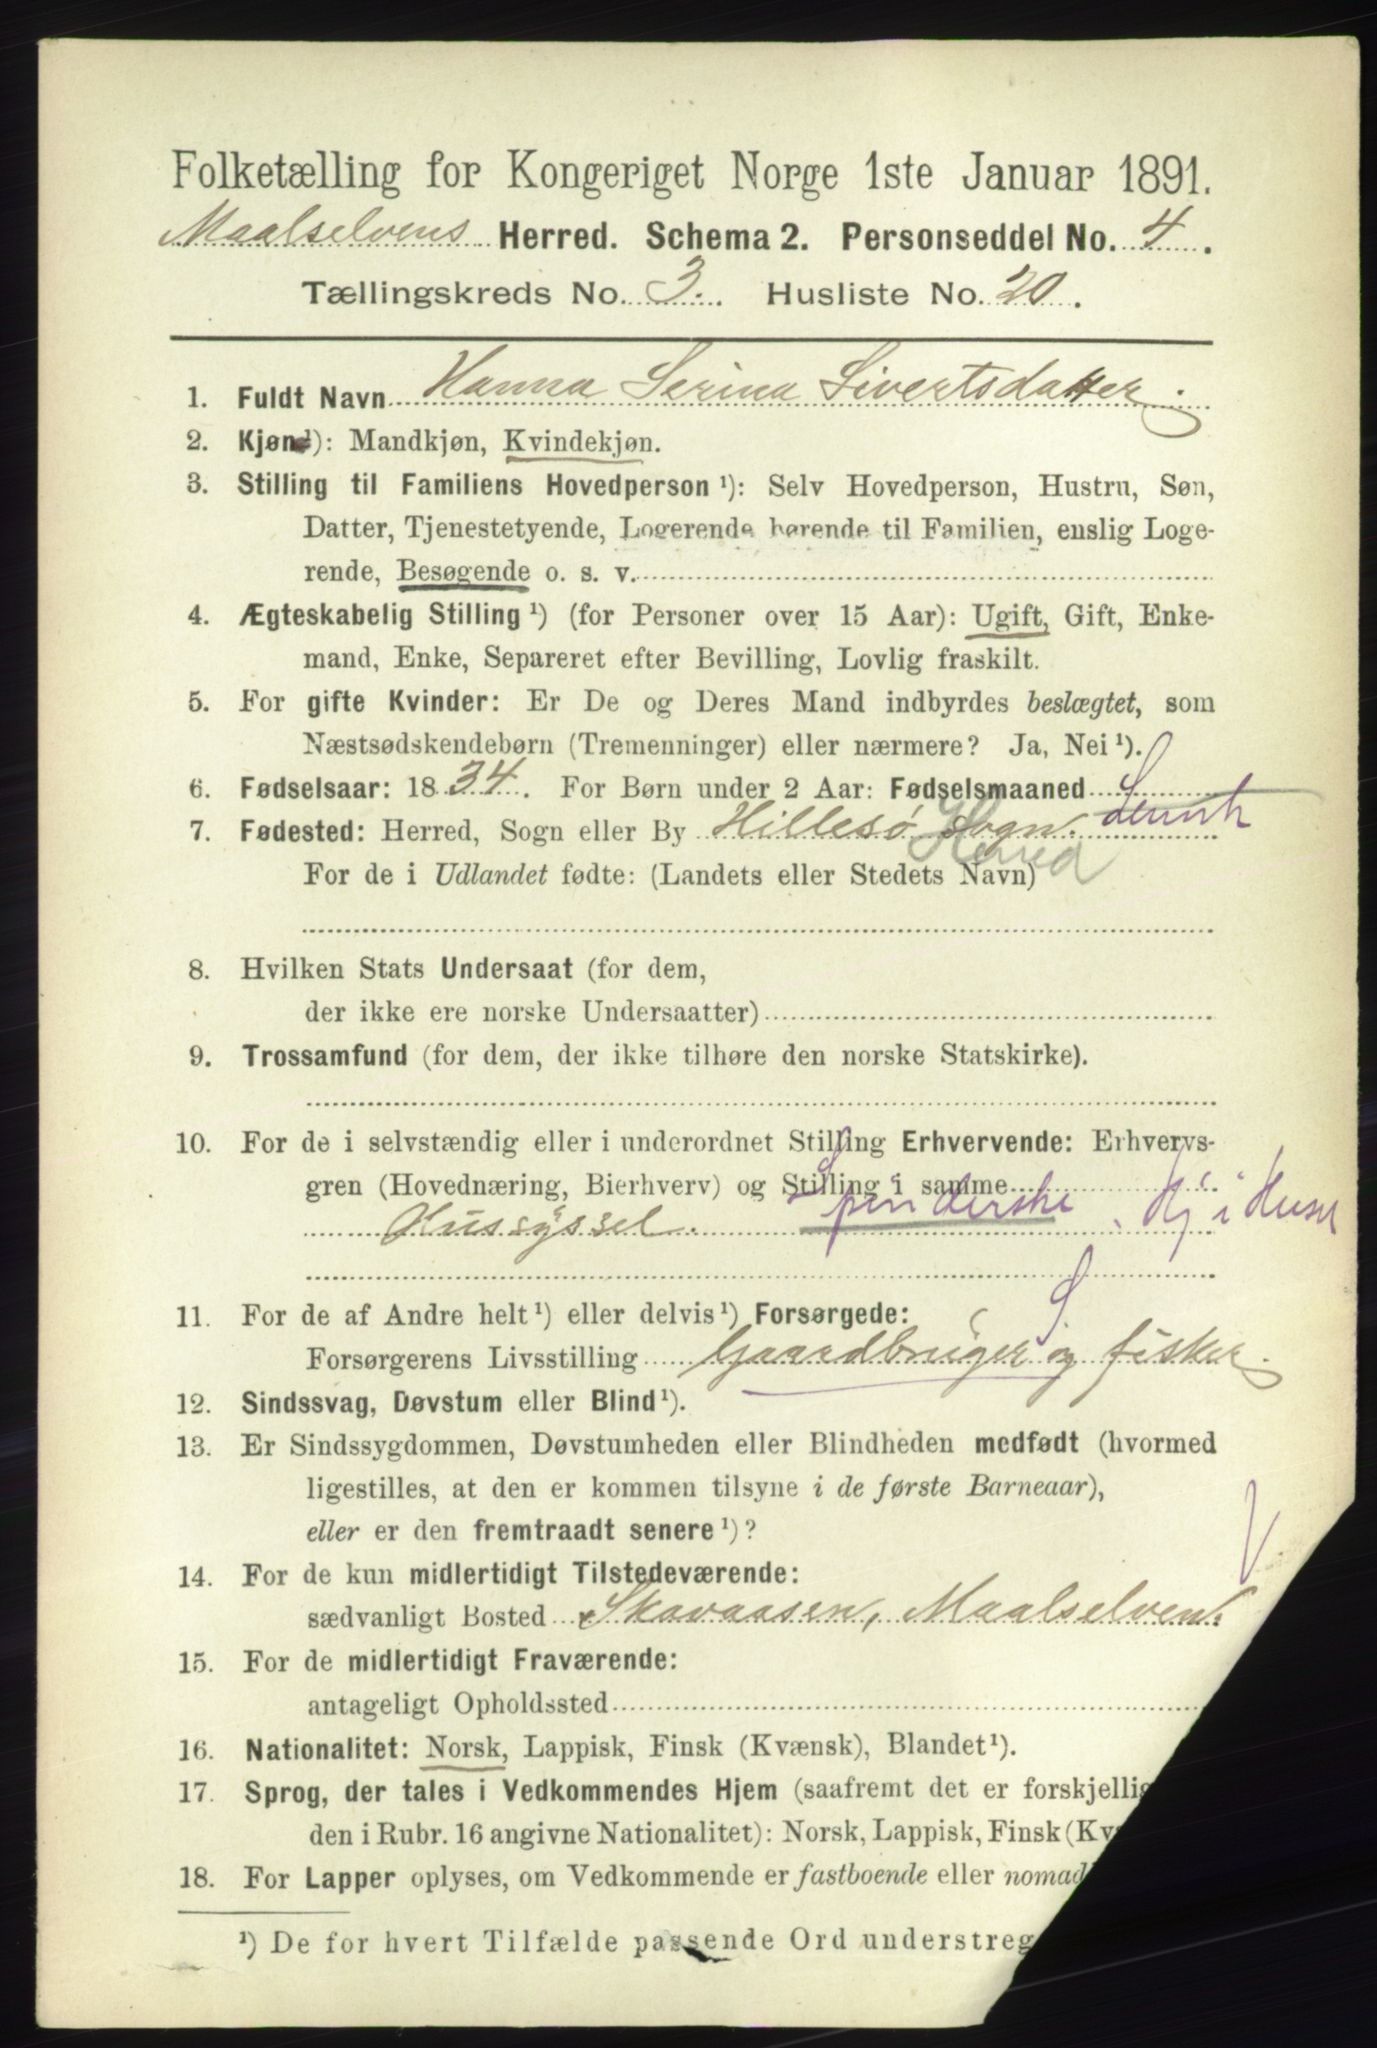 Folketælling for Kongeriget Norge 1ste Januar 1891.
Maalselvens Herred. Schema 2. Personseddel No. 4.
Tællingskreds No. 3. Husliste No. 20.
1. Fuldt Navn Hanna Serina Sivertsdatter.
2. Kjøn¹): Mandkjøn, Kvindekjøn.
3. Stilling til Familiens Hovedperson¹): Selv Hovedperson, Hustru, Søn,
Datter, Tjenestetyende, Logerende hørende til Familien, enslig Loge-
rende, Besøgende o. s. v.
4. Ægteskabelig Stilling¹) (for Personer over 15 Aar): Ugift, Gift, Enke-
mand, Enke, Separeret efter Bevilling, Lovlig fraskilt.
5. For gifte Kvinder: Er De og Deres Mand indbyrdes beslægtet, som
Næstsødskendebørn (Tremenninger) eller nærmere? Ja, Nei¹).
6. Fødselsaar: 1834. For Børn under 2 Aar: Fødselsmaaned
7. Fødested: Herred, Sogn eller By Hillesø Sogn. Lenvik
Herred
For de i Udlandet fødte: (Landets eller Stedets Navn)
8. Hvilken Stats Undersaat (for dem,
der ikke ere norske Undersaatter)
9. Trossamfund (for dem, der ikke tilhøre den norske Statskirke).
10. For de i selvstændig eller i underordnet Stilling Erhvervende: Erhvervs-
gren (Hovednæring, Bierhverv) og Stilling i samme
Hussyssel. Spinderske, Hj i Huset
11. For de af Andre helt¹) eller delvis¹) Forsørgede:
S.
Forsørgerens Livsstilling Gaardbruger og fisker.
12. Sindssvag, Døvstum eller Blind¹).
13. Er Sindssygdommen, Døvstumheden eller Blindheden medfødt (hvormed
ligestilles, at den er kommen tilsyne i de første Barneaar),
eller er den fremtraadt senere¹)?
14. For de kun midlertidigt Tilstedeværende:
sædvanligt Bosted Skavaasen, Maalselven.
15. For de midlertidigt Fraværende:
antageligt Opholdssted
16. Nationalitet: Norsk, Lappisk, Finsk (Kvænsk), Blandet¹).
17. Sprog, der tales i Vedkommendes Hjem (saafremt det er forskjellig
den i Rubr. 16 angivne Nationalitet): Norsk, Lappisk, Finsk (Kv
18. For Lapper oplyses, om Vedkommende er fastboende eller nomad
¹) De for hvert Tilfælde passende Ord understreg